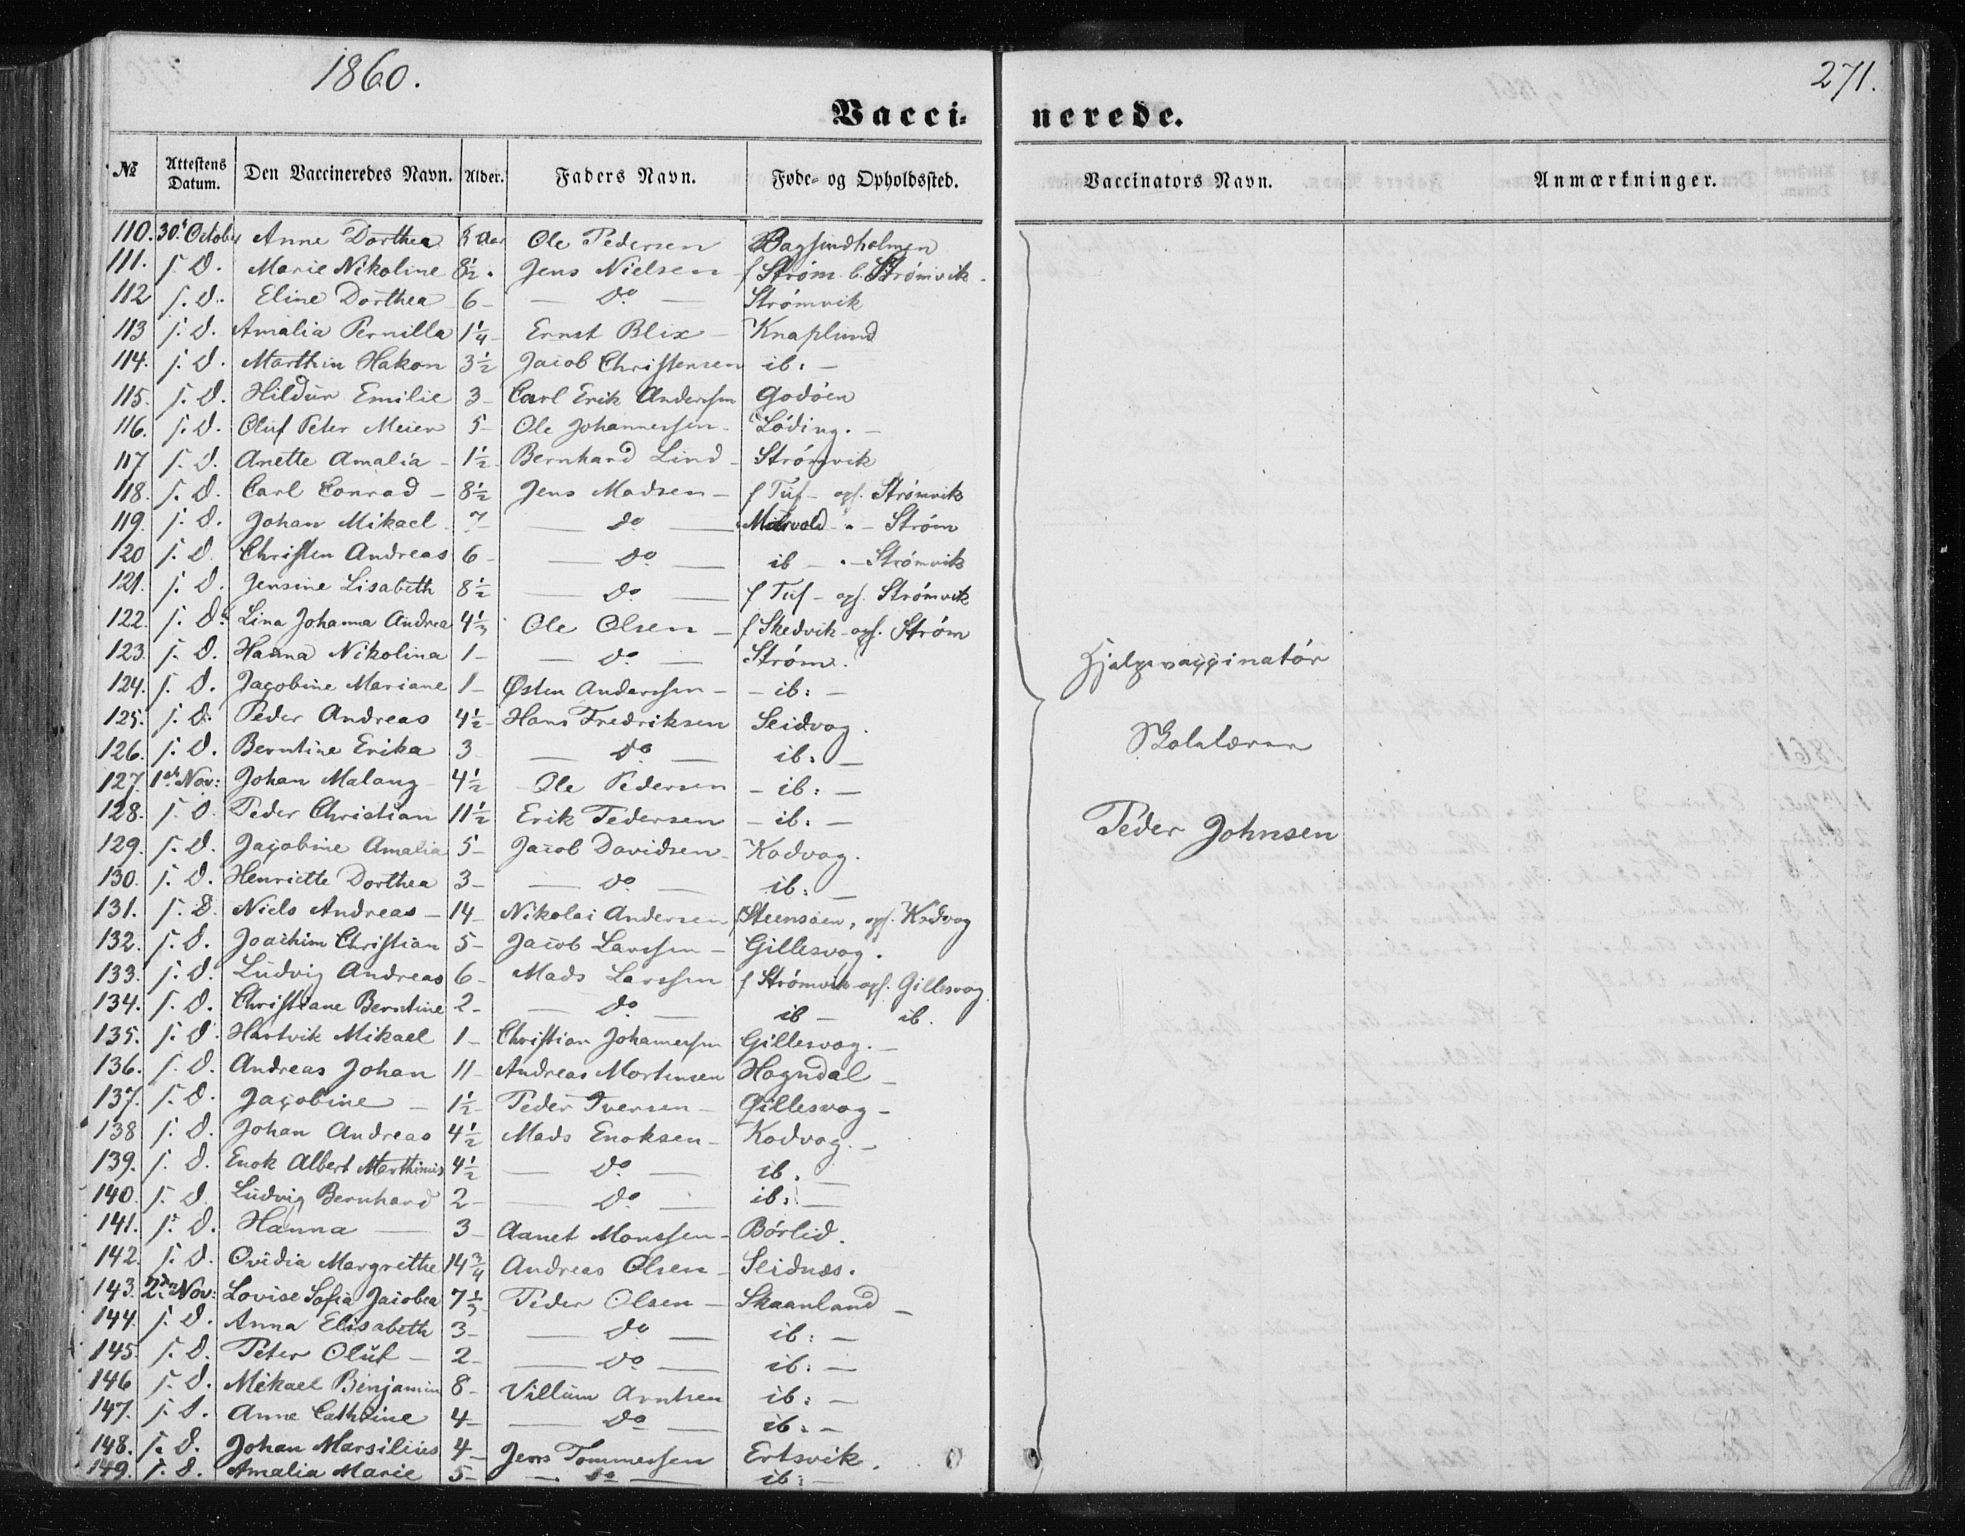 1860.
271.
Vacci- nerede.
№ | Attestens Datum. | Den Vaccineredes Navn. | Alder. | Faders Navn. | Føde- og Opholdssted. | Vaccinators Navn. | Anmærkninger.
110. 30te Octobr Anne Dorthea 5 Aar Ole Pedersen
111. s. D. Marie Nikoline 8½ Jens Nielsen f Strøm b. Strømvik
112 s. D. Eline Dorthea 6 - Do - Strømvik
113 s. D. Amalia Pernilla 1¼ Ernst Blix - Knaplund
114. s. D. Marthin Hakon 3½ Jacob Christensen ib: -
115. s. D. Hildur Emilie 3 - Carl Erik Anderssen Godøen
116. s. D. Oluf Peter Meier 5 - Ole Johannessen - Løding. -
117 s. D. Anette Amalia - 1½ - Bernhard Lind - Strømvik
118. s. D. Carl Conrad - 8½ Jens Madsen - f Tuf - oph. Strømvik
119. s. D. Johan Mikael 7 - Do - " - Strøm
120 s. D. Christen Andreas 6 - Do - ib - " - Strømvik
121. s. D. Jensine Lisabeth 8½ - Do - f Tuf - oph. Strømvik
122. s. D. Lina Johanna Andrea 4⅓ Ole Olsen - f Skedvik - oph. Strøm
123. s. D. Hanna Nikolina 1 - Do - Strøm.
124. s. D. Jacobine Mariane 1 - Østen Anderssen - - ib: -
125. s. D. Peder Andreas 4½ - Hans Fredriksen Seidvog.
126. s. D. Berntine Erika 3 - Do ib: -
127. 1ste Nov: Johan Malang - 4½ Ole Pedersen - ib: -
128. s. D. Peder Christian 11½ Erik Pedersen - ib: -
129. s. D. Jacobine Amalia 5 - Jacob Davidsen - Kodvog.
130. s. D. Henriette Dorthea 3 - Do - ib: -
131. s. D. Niels Andreas - 14 - Nikolai Andersen f Steensøen, oph. Kodvog
132. s. D. Joachim Christian 5 - Jacob Larssen - Gillesvog.
133. s. D. Ludvig Andreas 6 - Mads Larssen f Strømvik oph. Gillesvog
134. s. D. Christiane Berntine 2 - Do - ib - ib.
135. s. D. Hartvik Mikael 1 - Christian Johanessen Gillesvog. -
136. s. D. Andreas Johan 11 - Andreas Mortensen Hogndal -
137. s. D. Jacobine - 1½ - Peder Iversen - Gillesvog -
138 s. D. Johan Andreas 4½ Mads Enoksen - Kodvog. -
139. s. D. Enok Albert Marthinus 4½ - Do - ib. -
140. s. D. Ludvig Bernhard 2 - Do - ib: -
141. s. D. Hanna - 3 - Aanet Monssen - Børlid.
142. s. D. Ovidia Margrethe 14¾ Andreas Olsen - Seidnæs.
143. 2den Nov: Lovise Sofia Jacobea 7⅓ - Peder Olsen - Skaanland -
144. s. D. Anna Elisabeth 3 - Do - ib: -
145. s. D. Peter Oluf - 2 - Do - ib: -
146 s. D. Mikael Benjamin 8 - Villum Arntsen ib: -
147. s. D. Anne Cathrine 4 - Do - ib: -
148. s. D. Johan Marsilius 4 - Jens Tommessen Ertsvik.
149. s. D. Amalia Marie 5 - Do - ib: -
Hjelpevaccinatør
Skolelærer
Peder Johnsen